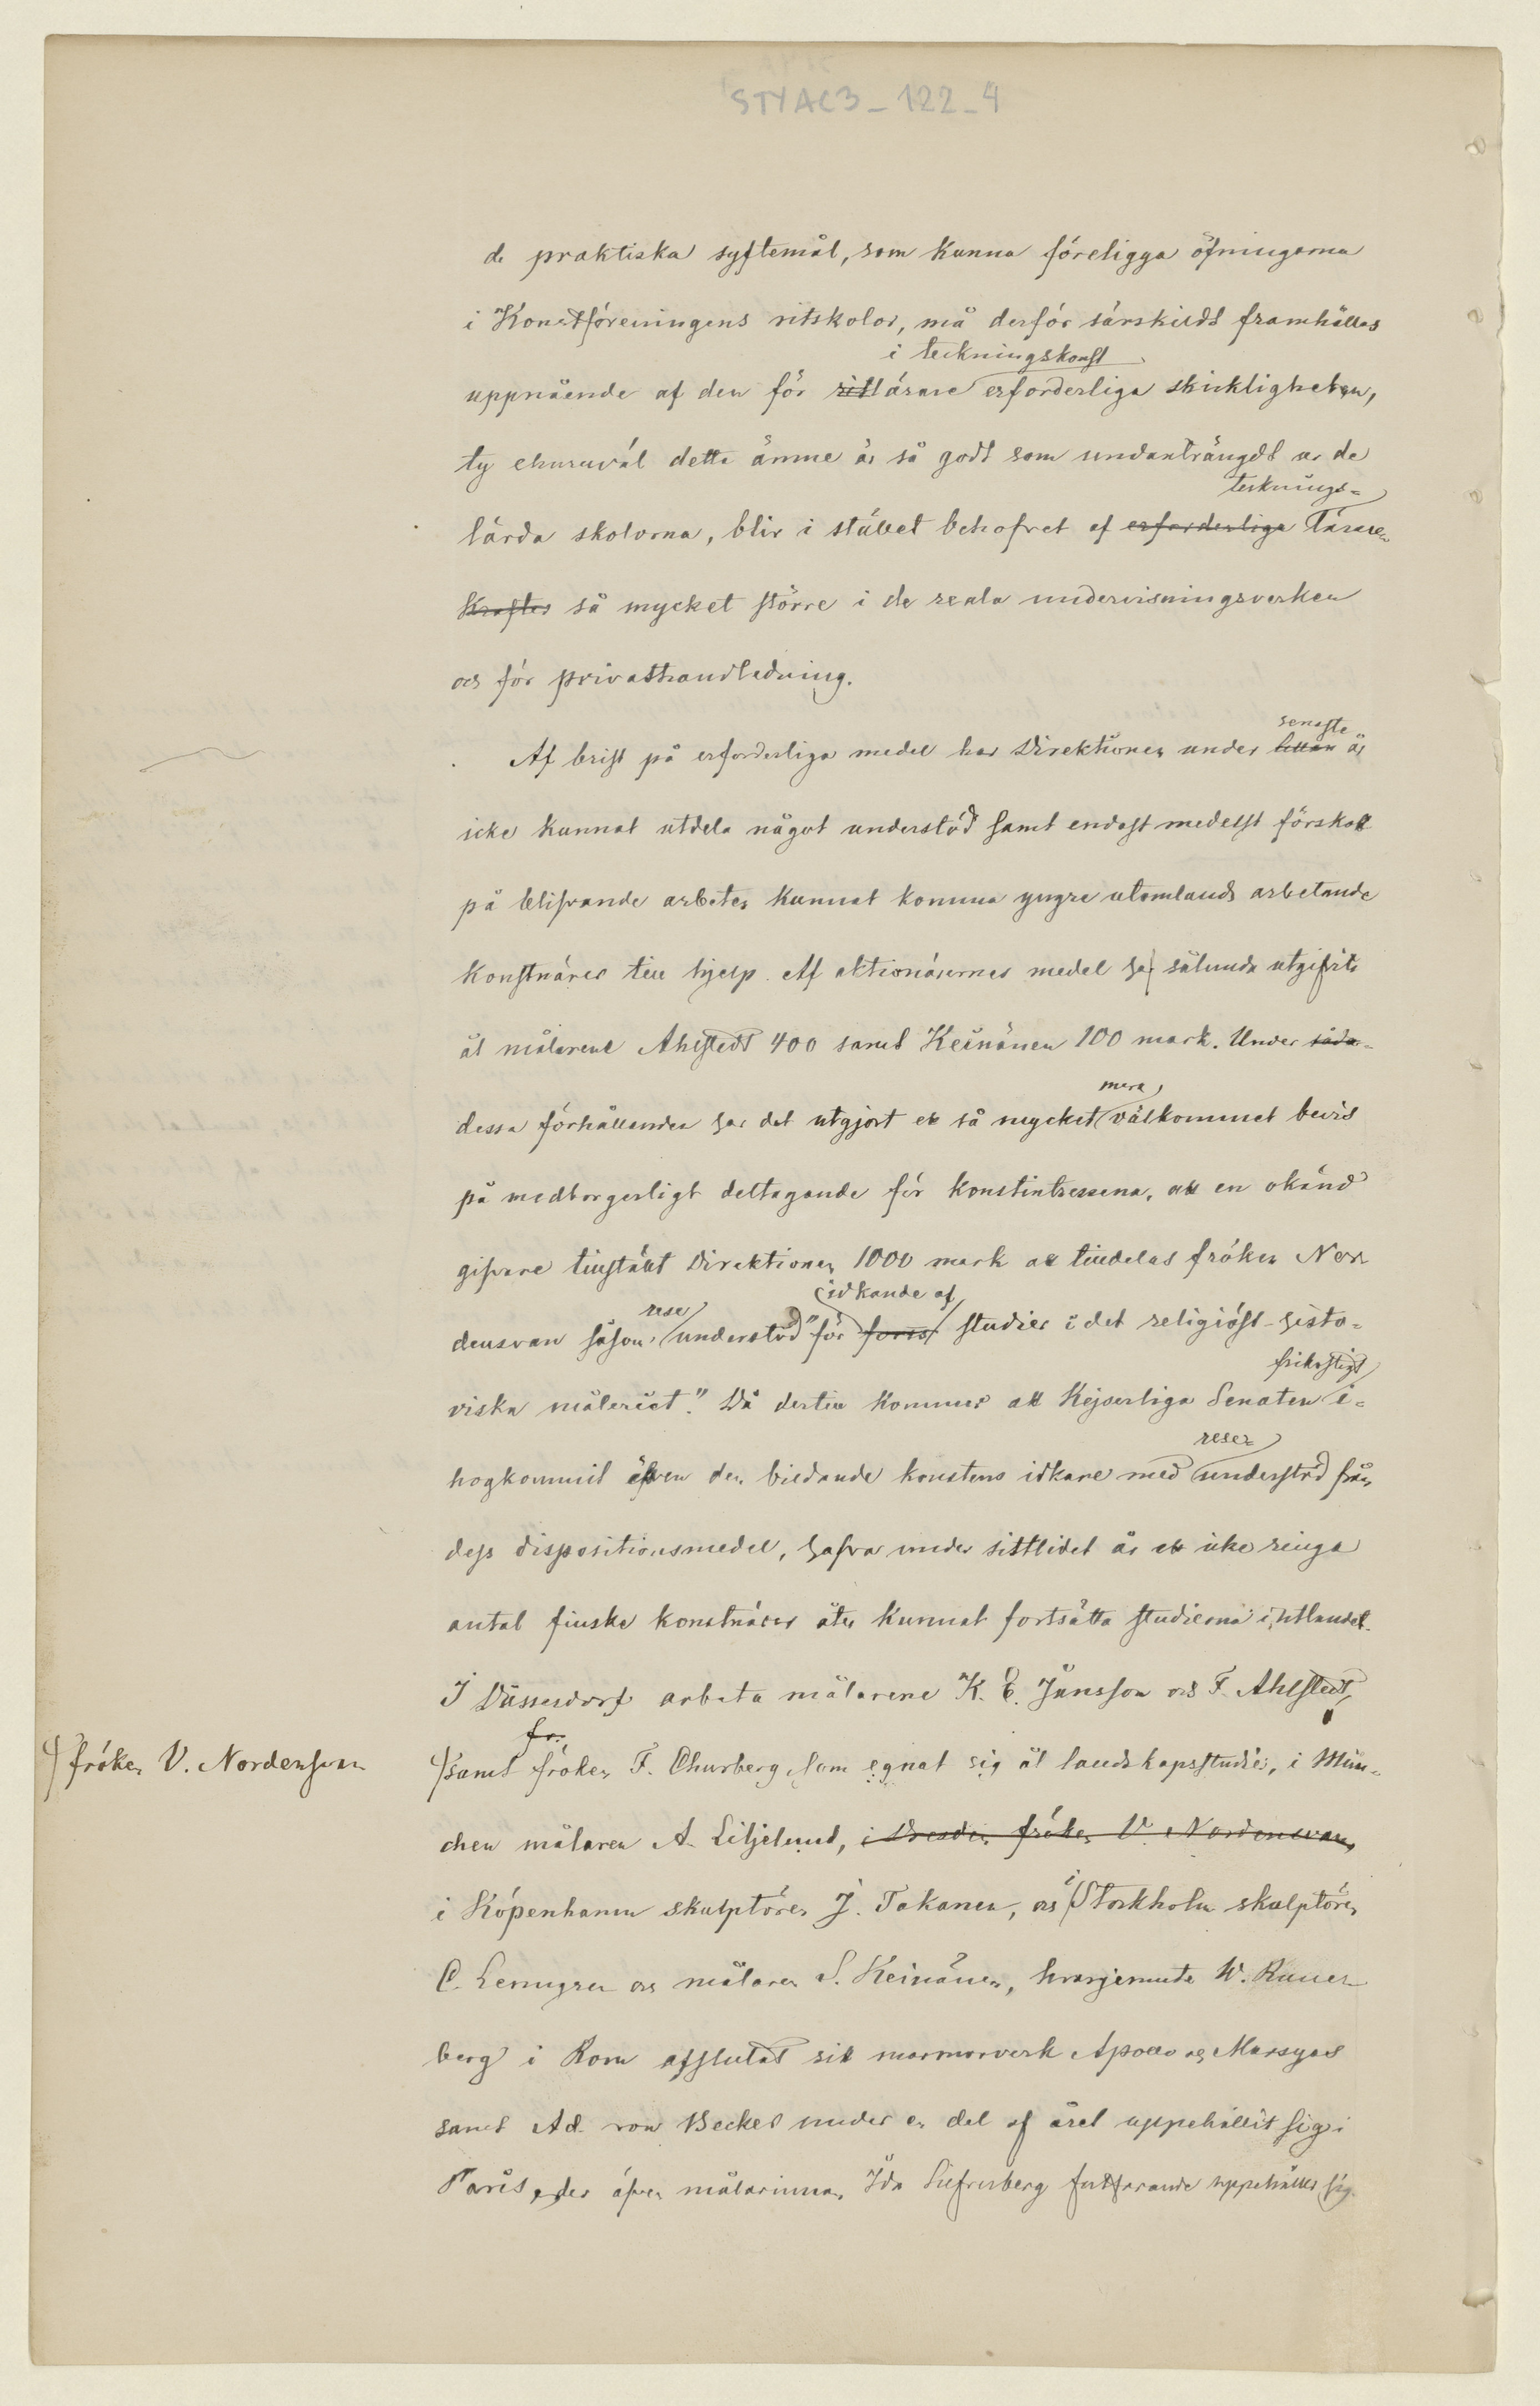 STYAC3_122_4
de praktiska syftemål, som kunna föreligga öfningarna
i Konstföreningens ritskolor, må derför särskildt framhållas
i teckningskonst
uppnående af den för ritlärare erforderliga skickligheten,
ty ehuruväl detta ämne är så godt som undanträngdt ur de
tecknings-
lärda skolorna, blir i stället behofvet af erforderliga lärare
krafter så mycket större i de reala undervisningsverken
och för privathandledning.
senaste
Af brist på erforderliga medel har Direktionen under år
icke kunnat utdela något understöd samt endast medelst förskott
på blifvande arbeten kunnat komma yngre utomlands arbetande
konstnärer till hjelp. Af aktionärernes medel har sålunda utgifvits
åt målarene Ahlstedt 400 samt Keinänen 100 mark. Under såda-
mera
dessa förhållanden har det utgjort ett så mycket välkommet bevis
på medborgerligt deltagande för konstintressena, att en okänd
gifvare tillstält Direktionen 1000 mark att tilldelas fröken Nor-
idkande af
rese
densvan såsom "understöd för studier i det religiöst-histo-
frikostigt
riska måleriet." Då dertill kommer att Kejserliga Senaten i-
rese-
hogkommit äfven den bildande konstens idkare med understöd från
dess dispositionsmedel, hafva under sistlidet år ett icke ringa
antal finske konstnärer åter kunnat fortsätta studierna i utlandet.
I Düsseldorf arbeta målarene K. E. Jansson och F. Ahlstedt,
fr.
fröken V. Nordensvan
samt fröken F. Churberg, som egnat sig åt landskapsstudier, i Mün-
chen målaren A. Liljelund, i Dresden fröken V. Nordensvan,
i Köpenhamn skulptören J. Takanen, och i Stockholm skulptören
C. Lemgren och målaren S. Keinänen, hvarjemte W. Runeberg
berg i Rom afslutat sitt marmorverk Apollo och Marsyas
samt Ad. von Becker under en del af året uppehållit sig i
Paris, der äfven målarinnan Ida Silfverberg fortfarande uppehåller sig.